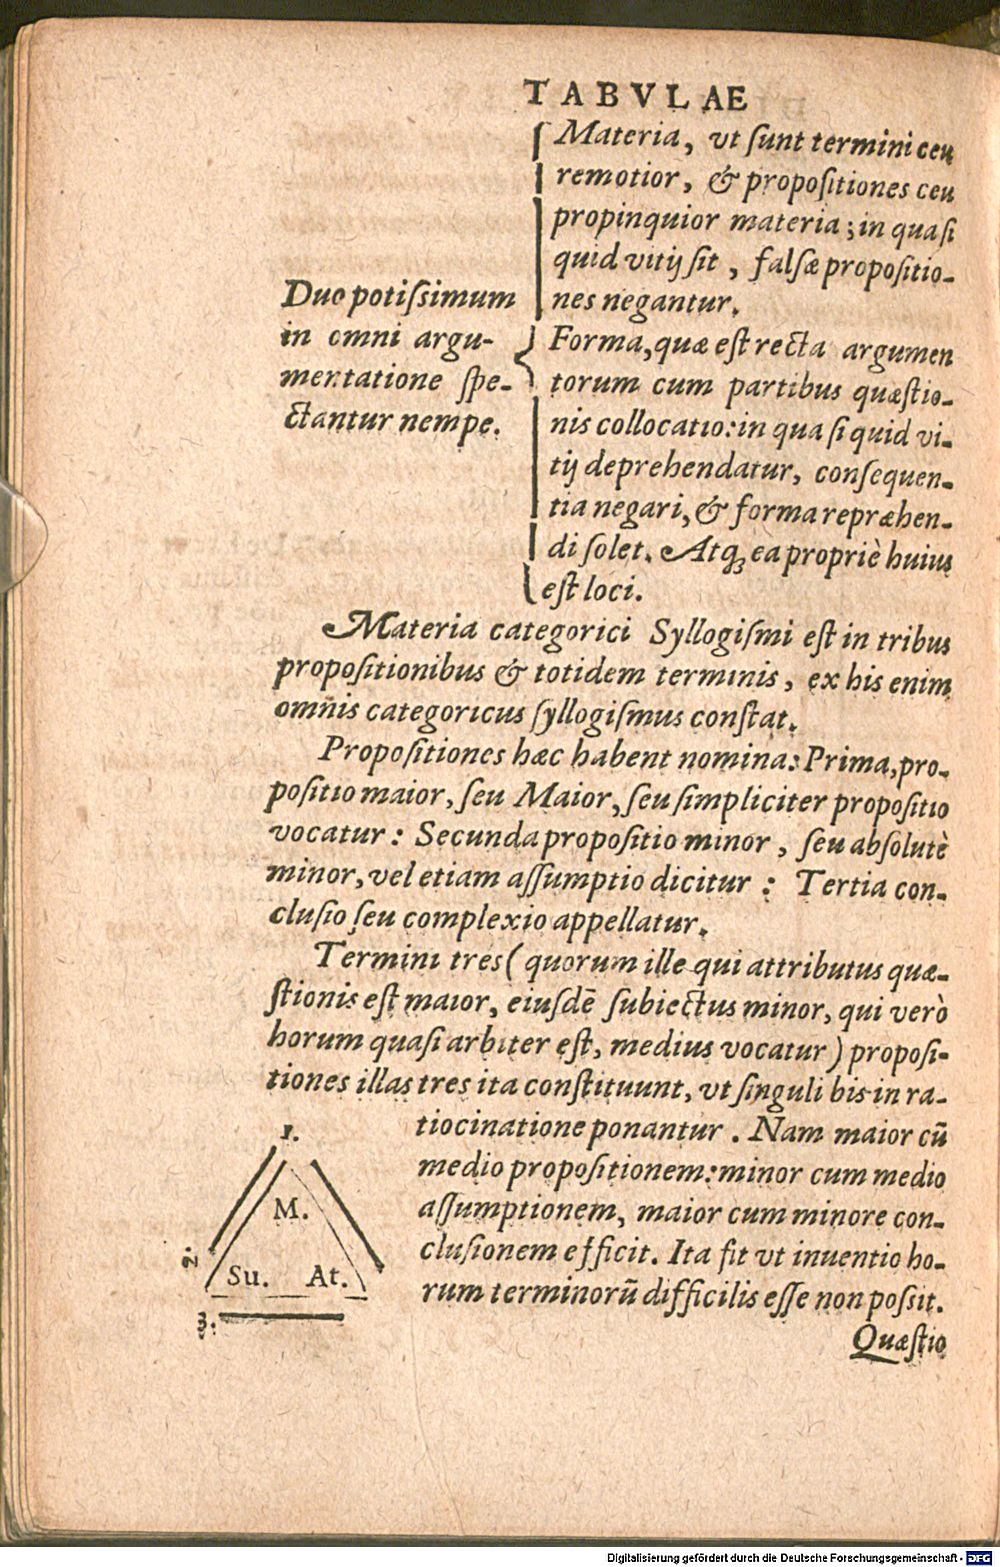 TABVLAE
Duo potiſsimum
in omni argu-
mentatione ſpe-
ctantur nempe.
Materia, vt ſunt termini ceu
remotior, & propoſitiones ceu
propinquior materia; in qua ſi
quid vitij ſit, falſæ propoſitio-
nes negantur.
Forma, quæ eſt recta argumen
torum cum partibus quæſtio-
nis collocatio: in qua ſi quid vi-
tij deprehendatur, conſequen-
tia negari, & forma repræhen-
di ſolet. Atq; ea propriè huius
eſt loci.
Materia categorici Syllogiſmi eſt in tribus
propoſitionibus & totidem terminis, ex his enim
omnis categoricus ſyllogiſmus conſtat.
Propoſitiones hæc habent nomina: Prima, pro-
poſitio maior, ſeu Maior, ſeu ſimpliciter propoſitio
vocatur: Secunda propoſitio minor, ſeu abſolutè
minor, vel etiam aſſumptio dicitur: Tertia con-
cluſio ſeu complexio appellatur.
Termini tres (quorum ille qui attributus quæ-
ſtionis eſt maior, eiuſdē ſubiectus minor, qui verò
horum quaſi arbiter eſt, medius vocatur) propoſi-
tiones illas tres ita conſtituunt, vt ſinguli bis in ra-
tiocinatione ponantur. Nam maior cū
medio propoſitionem: minor cum medio
aſſumptionem, maior cum minore con-
cluſionem efficit. Ita fit vt inuentio ho-
rum terminorū difficilis eſſe non poſsit.
1.
M.
2.
Su. At.
3.
Quæſtio
Digitalisierung gefördert durch die Deutsche Forschungsgemeinschaft - DFG